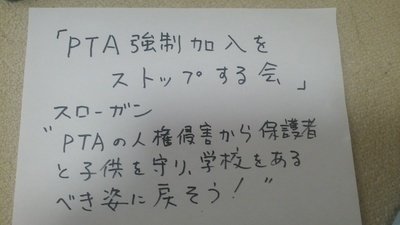 「PTA強制加入を
ストップする会」
スローガン
"PTAの人権侵害から保護者
と子供を守り、学校をある
べき姿に戻そう!"